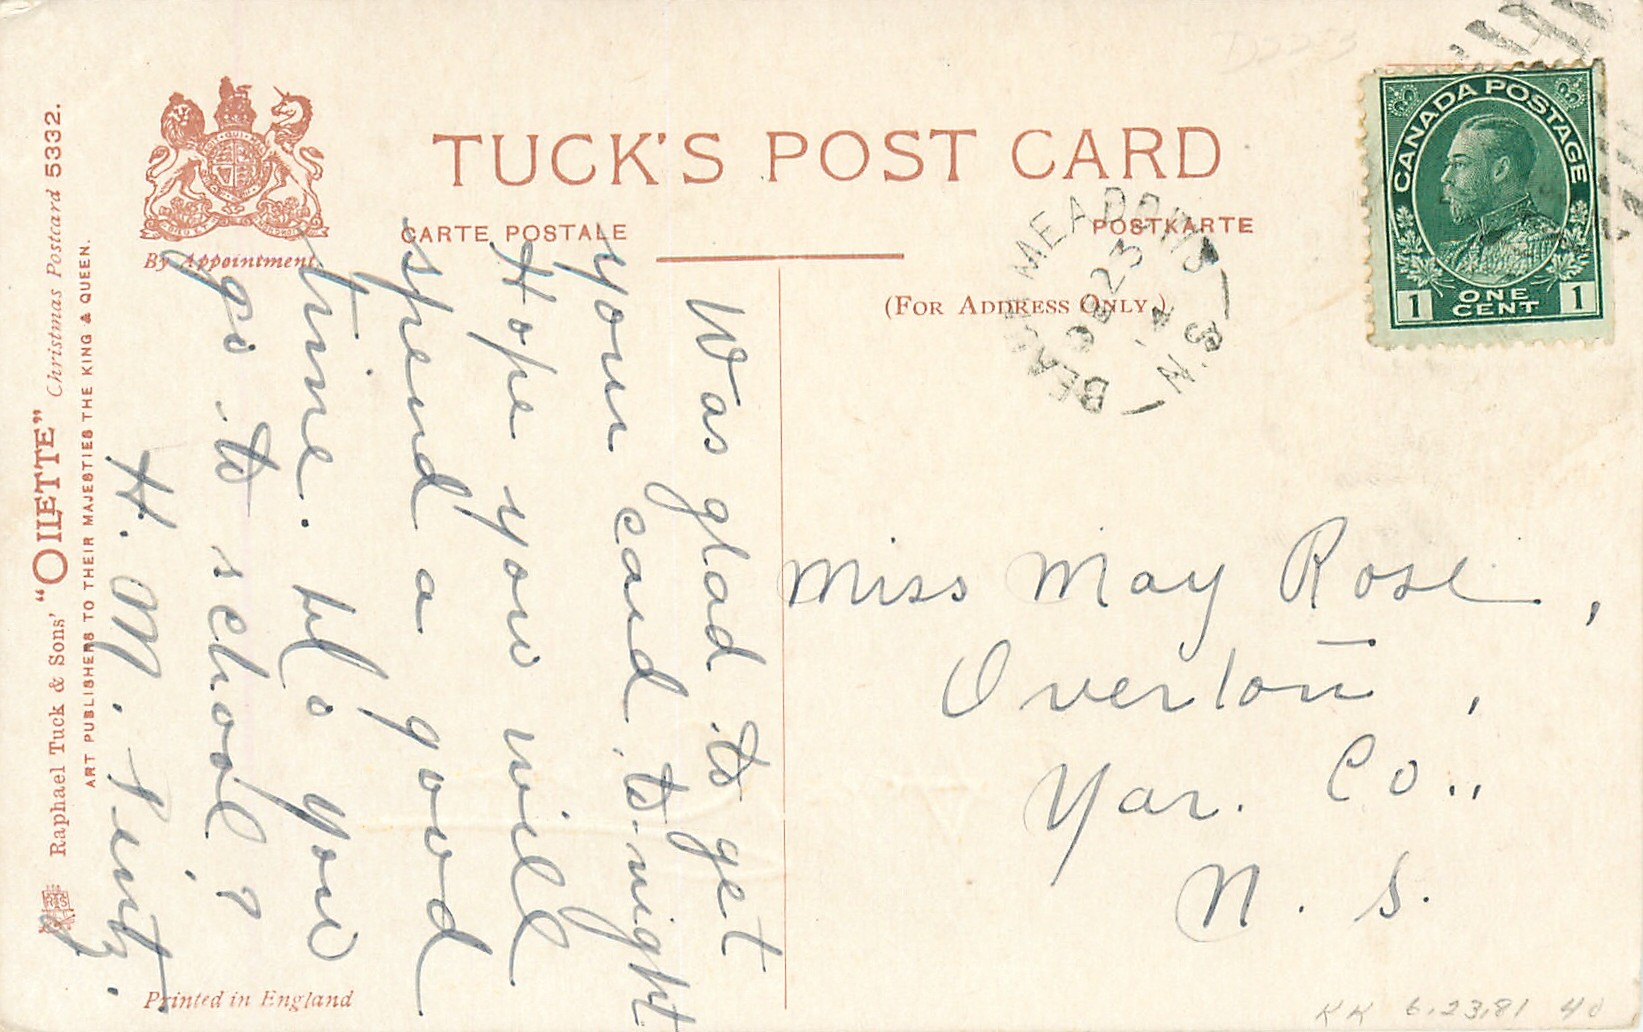 TUCK'S POST CARD
CARTE POSTALE
POSTKARTE
(FOR ADDRESS ONLY.)
By Appointment
CANADA POSTAGE
1 ONE CENT 1
MEADOWS
DE 23
14
N.S.
Raphael Tuck & Sons' "OILETTE" Christmas Postcard 5332.
ART PUBLISHERS TO THEIR MAJESTIES THE KING & QUEEN.
Was glad to get
your card to-night
Hope you will
spend a good
time. do you
go to school?
H. M.
Miss May Rose,
Overton,
Yar. Co.,
N. S.
Printed in England
KK 6.23.81 40